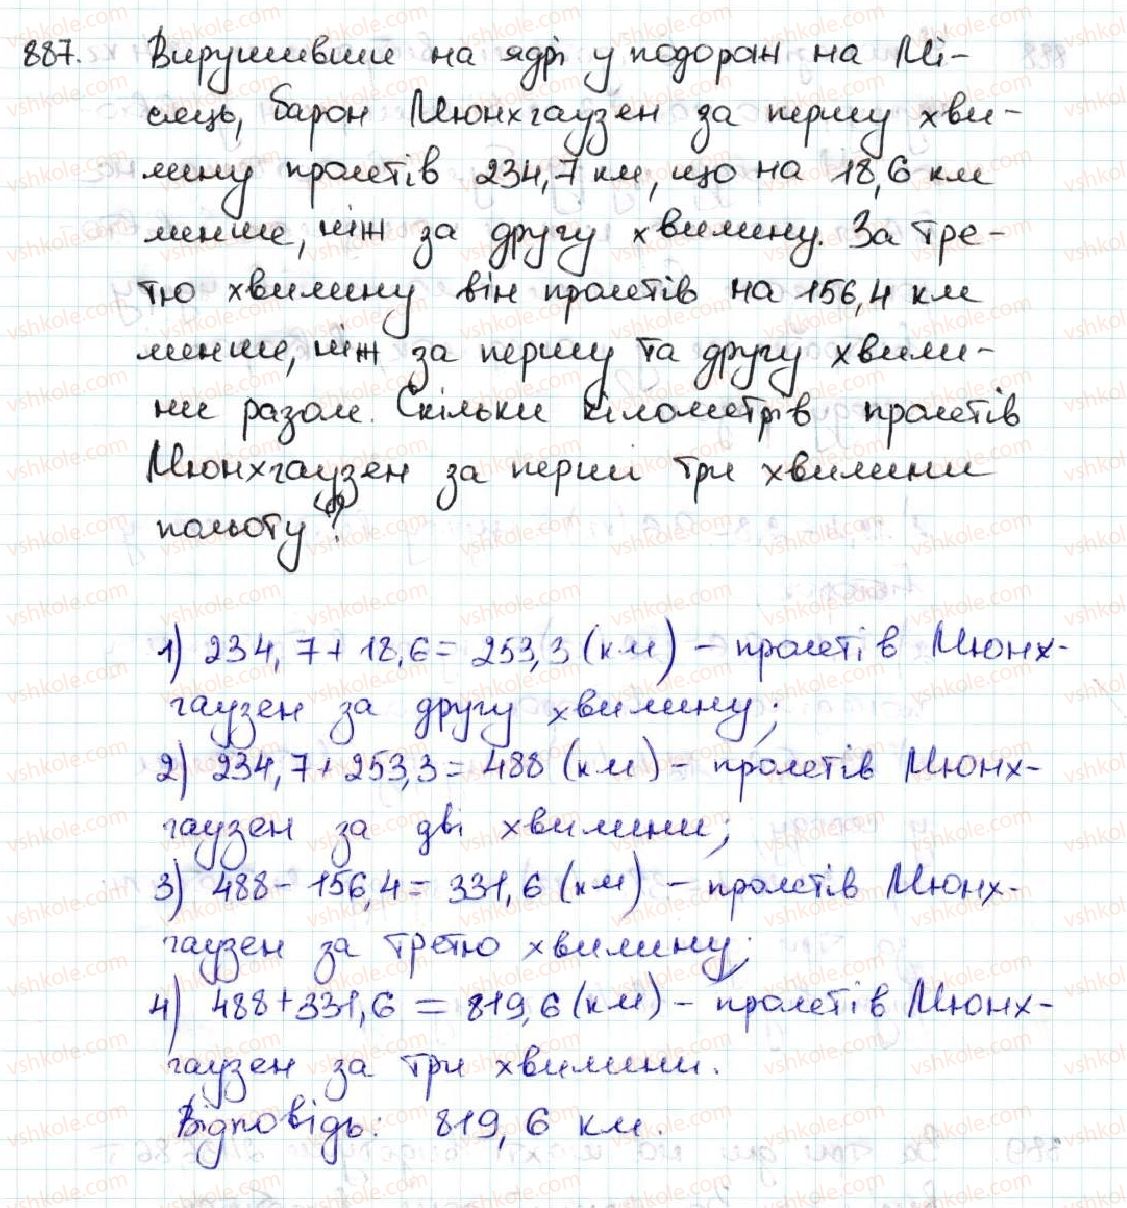 887. Вирушивши на ядрі у подорож на Мі-
сяць, барон Мюнхгаузен за першу хви-
лину пролетів 234,7 км, що на 18,6 км
менше, ніж за другу хвилину. За тре-
тю хвилину він пролетів на 156,4 км
менше, ніж за першу та другу хвили-
ни разом. Скільки кілометрів пролетів
Мюнхгаузен за перші три хвилини
польоту?
1) 234,7 + 18,6 = 253,3 (км) - пролетів Мюнх-
гаузен за другу хвилину;
2) 234,7 + 253,3 = 488 (км) - пролетів Мюнх-
гаузен за дві хвилини;
3) 488 - 156,4 = 331,6 (км) - пролетів Мюнх-
гаузен за третю хвилину;
4) 488 + 331,6 = 819,6 (км) - пролетів Мюнх-
гаузен за три хвилини.
Відповідь: 819,6 км.
vshkole.com